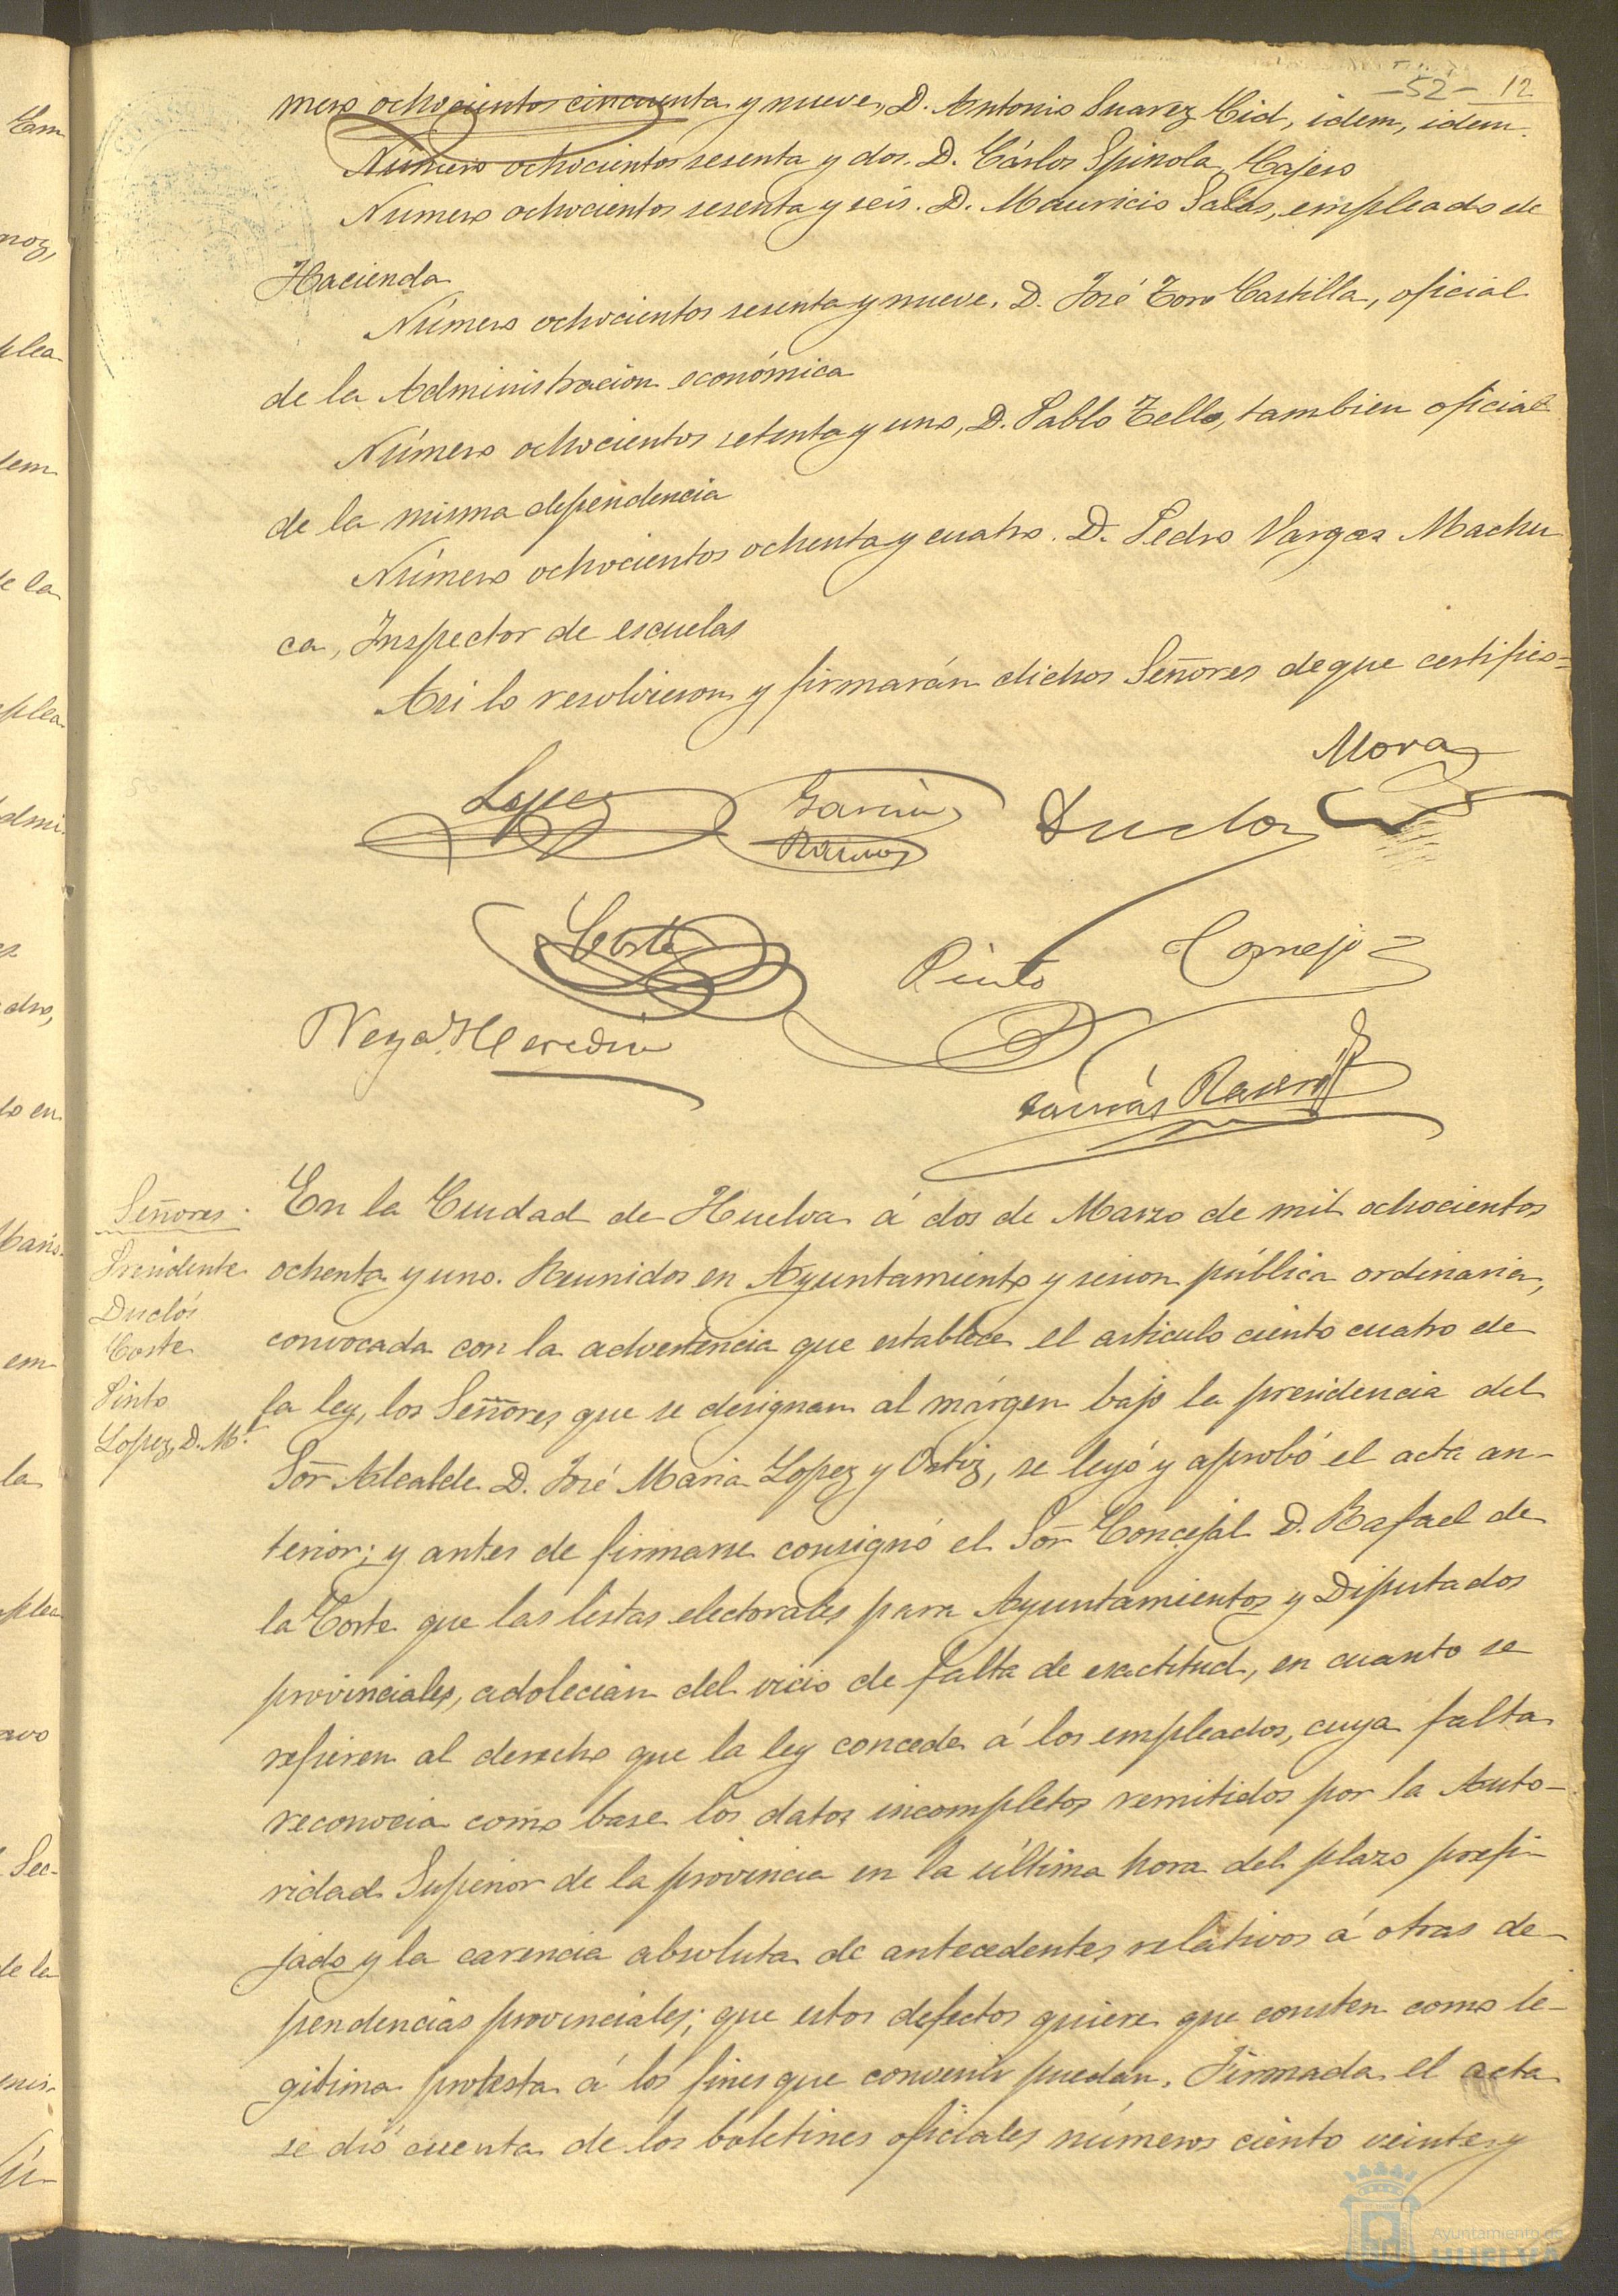 -52- 12
mero ochocientos cincuenta y nueve, D. Antonio Suarez Cid, idem, idem.
Número ochocientos sesenta y dos. D. Cárlos Spinola, Cajero
Número ochocientos sesenta y seis. D. Mauricio Salas, empleado de
Hacienda
Número ochocientos sesenta y nueve. D. José Toro Castilla, oficial
de la Administracion económica
Número ochocientos setenta y uno, D. Pablo Tello, tambien oficial
de la misma dependencia
Número ochocientos ochenta y cuatro. D. Pedro Vargas Machu
ca, Inspector de escuelas
Asi lo resolvieron y firmarán dichos Señores de que certifico=
Mora
Lopez García Duclos
Ramos
Corte Pinto Cornejo
Vega Heredia
Tomás
Señores.
Presidente
Duclós
Corte
Pinto
Lopez, D. M.l
En la Ciudad de Huelva á dos de Marzo de mil ochocientos
ochenta y uno. Reunidos en Ayuntamiento y sesion pública ordinaria,
convocada con la advertencia que establece el articulo ciento cuatro de
la ley, los Señores que se designan al márgen bajo la presidencia del
Sor Alcalde D. José Maria Lopez y Ortiz, se leyó y aprobó el acta an-
terior; y antes de firmarse consignó el Sor Concejal D. Rafael de
la Corte que las listas electorales para Ayuntamientos y Diputados
provinciales, adolecian del vicio de falta de exactitud, en cuanto se
refieren al derecho que la ley concede á los empleados, cuya falta
reconocia como base los datos incompletos remitidos por la Auto-
ridad Superior de la provincia en la última hora del plazo prefi-
jado y la carencia absoluta de antecedentes relativos á otras de-
pendencias provinciales; que estos defectos quiere que consten como le-
gitima protesta á los fines que convenir puedan. Firmada el acta
se dió cuenta de los boletines oficiales números ciento veinte y
Ayuntamiento de
HUELVA